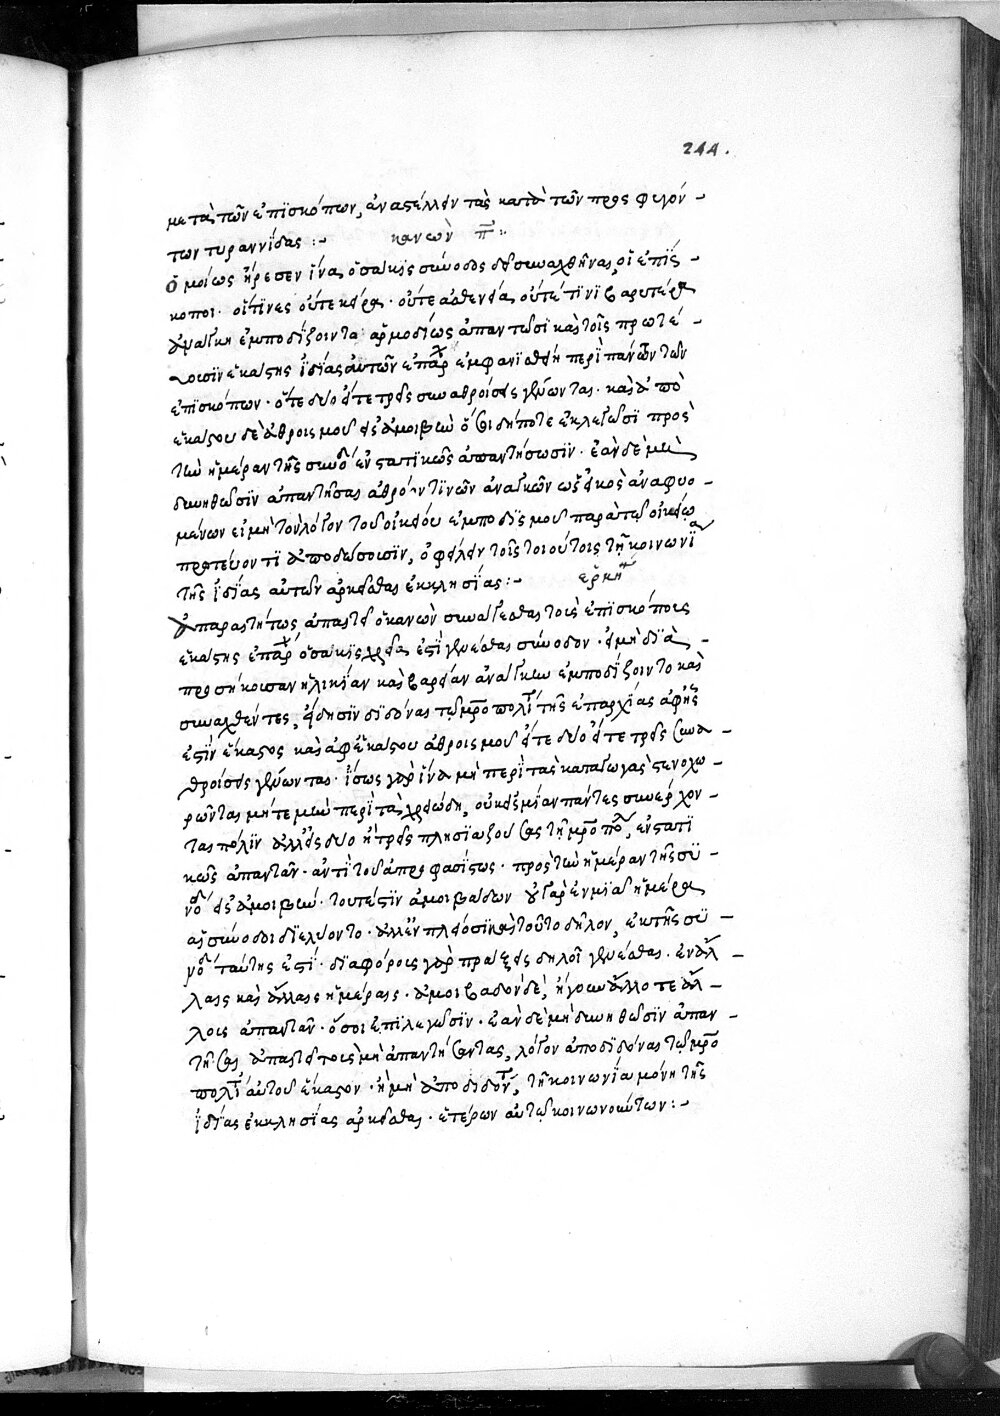 244.
μετὰ τῶν ἐπϊσκόπων, ἀναστέλλειν τὰς κατὰ τῶν προσφευγόν-
των τυραννίδας :~ κανὼν π̅:
Ὁμοίως ἤρεσεν ἵνα ὁσάκις σύνοδος δεῖ συναχθῆναι, οἱ ἐπΐσ-
κοποι· οἵτϊνες οὔτε γήρᾳ· οὔτε ἀσθενείᾳ οὔτέ τϊνϊ βαρυτέρᾳ
ἀνάγκη ἐμποδΐζοινται ἁρμοδίως ἀπαντῶσϊ καὶ τοῖς πρωτεύ-
ουσϊν ἑκάστης ϊδίας αὐτῶν ἐπαρχ ἐμφανϊσθῆ περὶ πάντων τῶν
ἐπϊσκόπων· εἴτε δύο εἴτε τρεῖς συναθροίσεις γένωνται· καὶ ἀπὸ
ἑκάστου δὲ ἀθροισμοῦ ἐξ ἀμοιβῆς ὅσοι δήποτε ἐκλεγῶσϊ πρὸς
τὴν ἡμέραν τῆς συνόδ ἐνστατϊκῶς ἀπαντήσωσϊν· ἐὰν δὲ μὴ
δυνηθῶσϊν ἀπαντῆσαι ἀθρόον τϊνῶν ἀναγκῶν ὡς εἰκὸς ἀναφυο-
μένων εἰ μὴ τὸν λόγον τοῦ οἰκείου ἐμποδϊσμοῦ παρὰ τῷ οἰκείῳ
πρωτεύοντϊ ἀποδώσουσϊν, ὀφείλειν τοὺς τοιούτους τῇ κοινωνΐᾳ
τῆς ϊδίας αὐτῶν ἀρκεῖσθαι ἐκκλησίας :~ ἑρμη
Ἀπαραιτήτως ἀπαιτεῖ ὁ κανὼν συνάγεσθαι τοὺς ἐπϊσκόπους
ἑκάστης ἐπαρχ ὁσάκϊς χρεία ἐστὶ γενέσθαι σύνοδον· εἰ μὴ δϊὰ
προσήκουσαν ἡλικίαν καὶ βαρεῖαν ἀνάγκην ἐμποδΐζοιντο καὶ
συναχθέντες, εἴδησϊν δϊδόναι τῷ μροπολίτ τῆς ἐπαρχίας ἀφ' ἧς
ἐστϊν ἕκαστος καὶ ἀφ' ἑκάστου ἀθροισμοῦ εἴτε δύο εἴτε τρεῖς συνα-
θροίσεις γένωνται· ἴσως γὰρ ἵνα μὴ περὶ τὰς καταγωγὰς στενοχω-
ρῶνται μήτε μὴν περὶ τὰ χρειώδη, οὐκ εἰς μίαν πάντες συνέρχον-
ται πόλϊν ἀλλ' εἰς δύο ἢ τρεῖς πλησϊαζούσας τῇ μροπο, ἐνστατϊ-
κῶς ἀπαντᾶν· ἀντὶ τοῦ ἀπροφασΐστως· πρὸς τὴν ἡμέραν τῆς συ-
νόδ ἐξ ἀμοιβῆς· τουτέστϊν ἀμοιβαδόν· οὐ γὰρ ἐν μϊᾷ ἡμέρᾳ
αἱ σύνοδοι δϊελύοντο· ἀλλ' ἐν πλείοσϊ καὶ τοῦτο δῆλον, ἐκ τῆς συ-
νόδ ταύτης ἐστί· δϊαφόροις γὰρ πράξεις δηλοῖ γενέσθαι· ἐν ἄλ-
λαις καὶ ἄλλαις ἡμέραις· ἀμοιβαδὸν δὲ, ἤγουν ἄλλοτε ἄλ-
λοις ἀπαντᾶν· ὅσοι ἐπϊλεγῶσϊν· ἐὰν δὲ μὴ δυνηθῶσϊν ἀπαν-
τῆσαι ἀπαιτεῖ τοὺς μὴ ἀπαντήσαντας, λόγον ἀποδϊδόναι τῷ μρο
πολίτ αὐτοῦ ἕκαστον· εἰ μὴ ἀποδιδόντ, τῇ κοινωνΐᾳ μόνῃ τῆς
ϊδΐας ἐκκλησΐας ἀρκεῖσθαι· ἑτέρων αὐτῷ κοινωνούντων :~